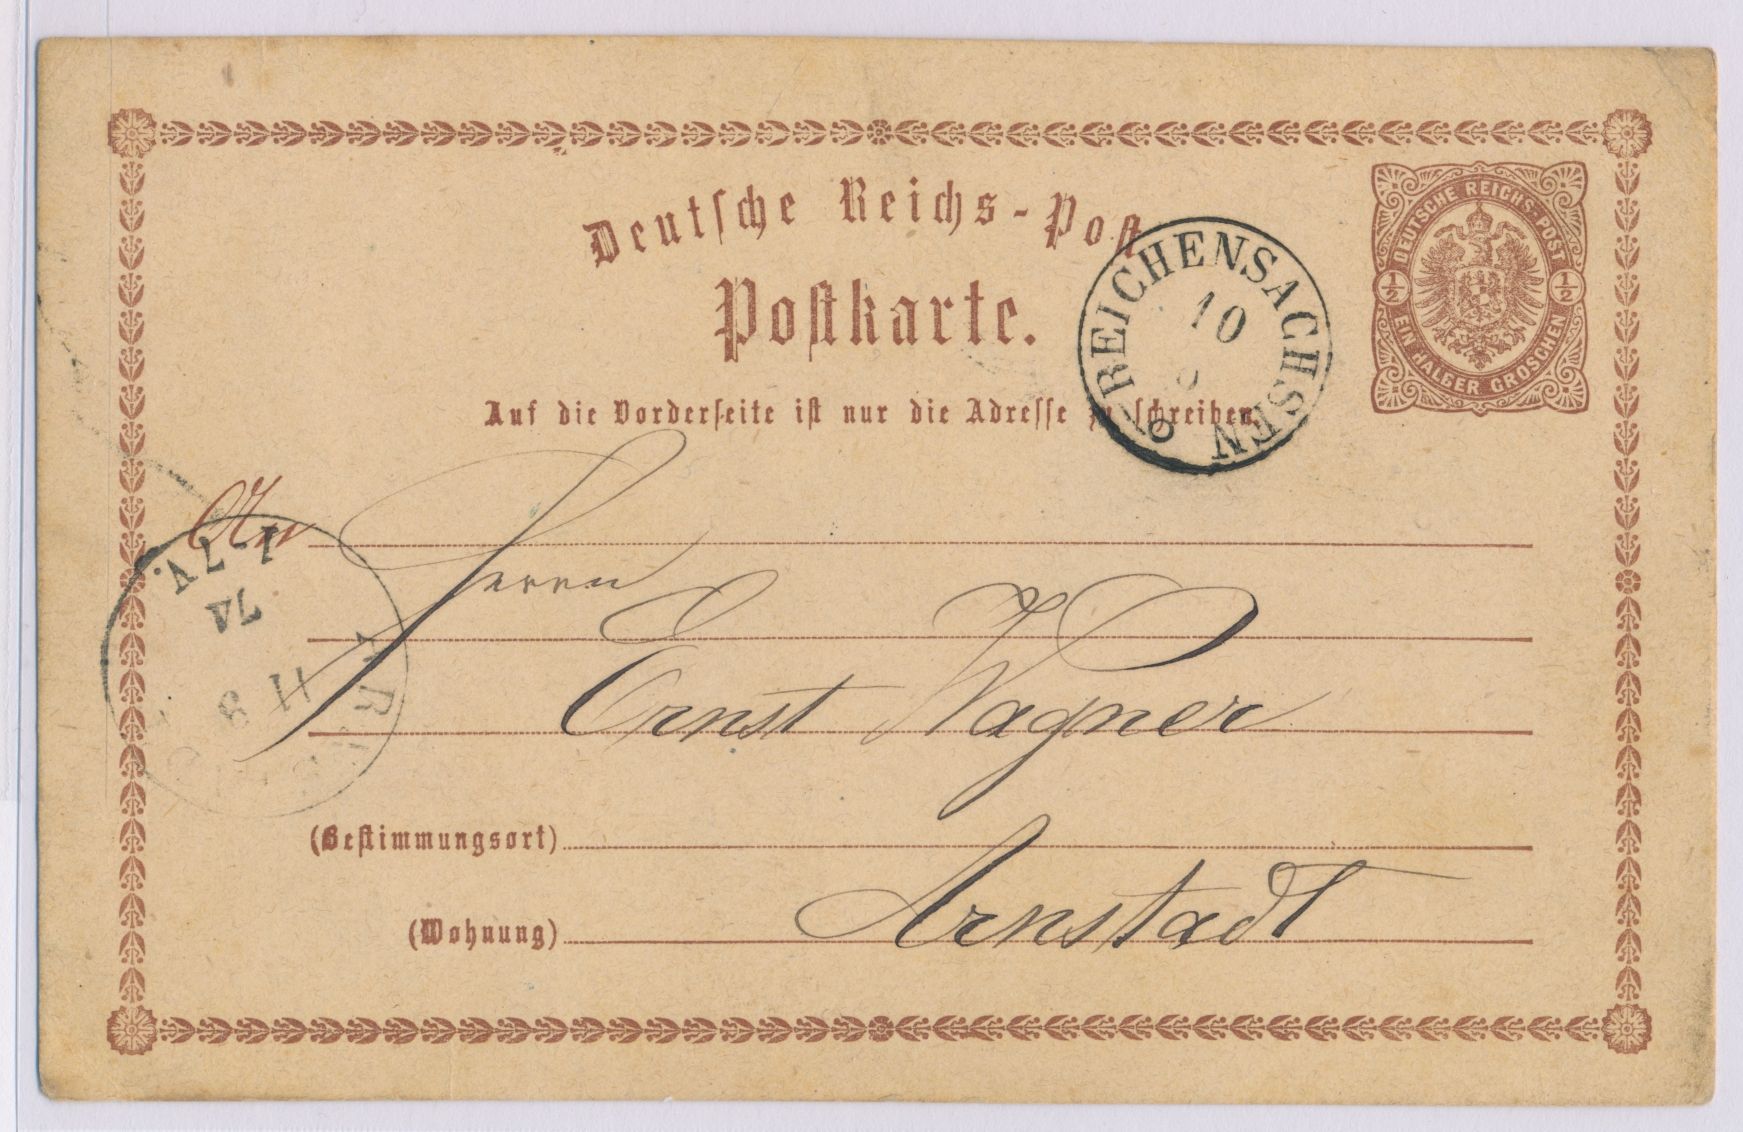 Deutsche Reichs-Post
Postkarte.
DEUTSCHE REICHS-POST
1/2 1/2
EIN HALBER GROSCHEN
REICHENSACHSEN
10
Auf die Vorderseite ist nur die Adresse zu schreiben.
An
Herrn
1-7V.
74
11 8
Ernst Wagner
(Bestimmungsort)
Arnstadt
(Wohnung)